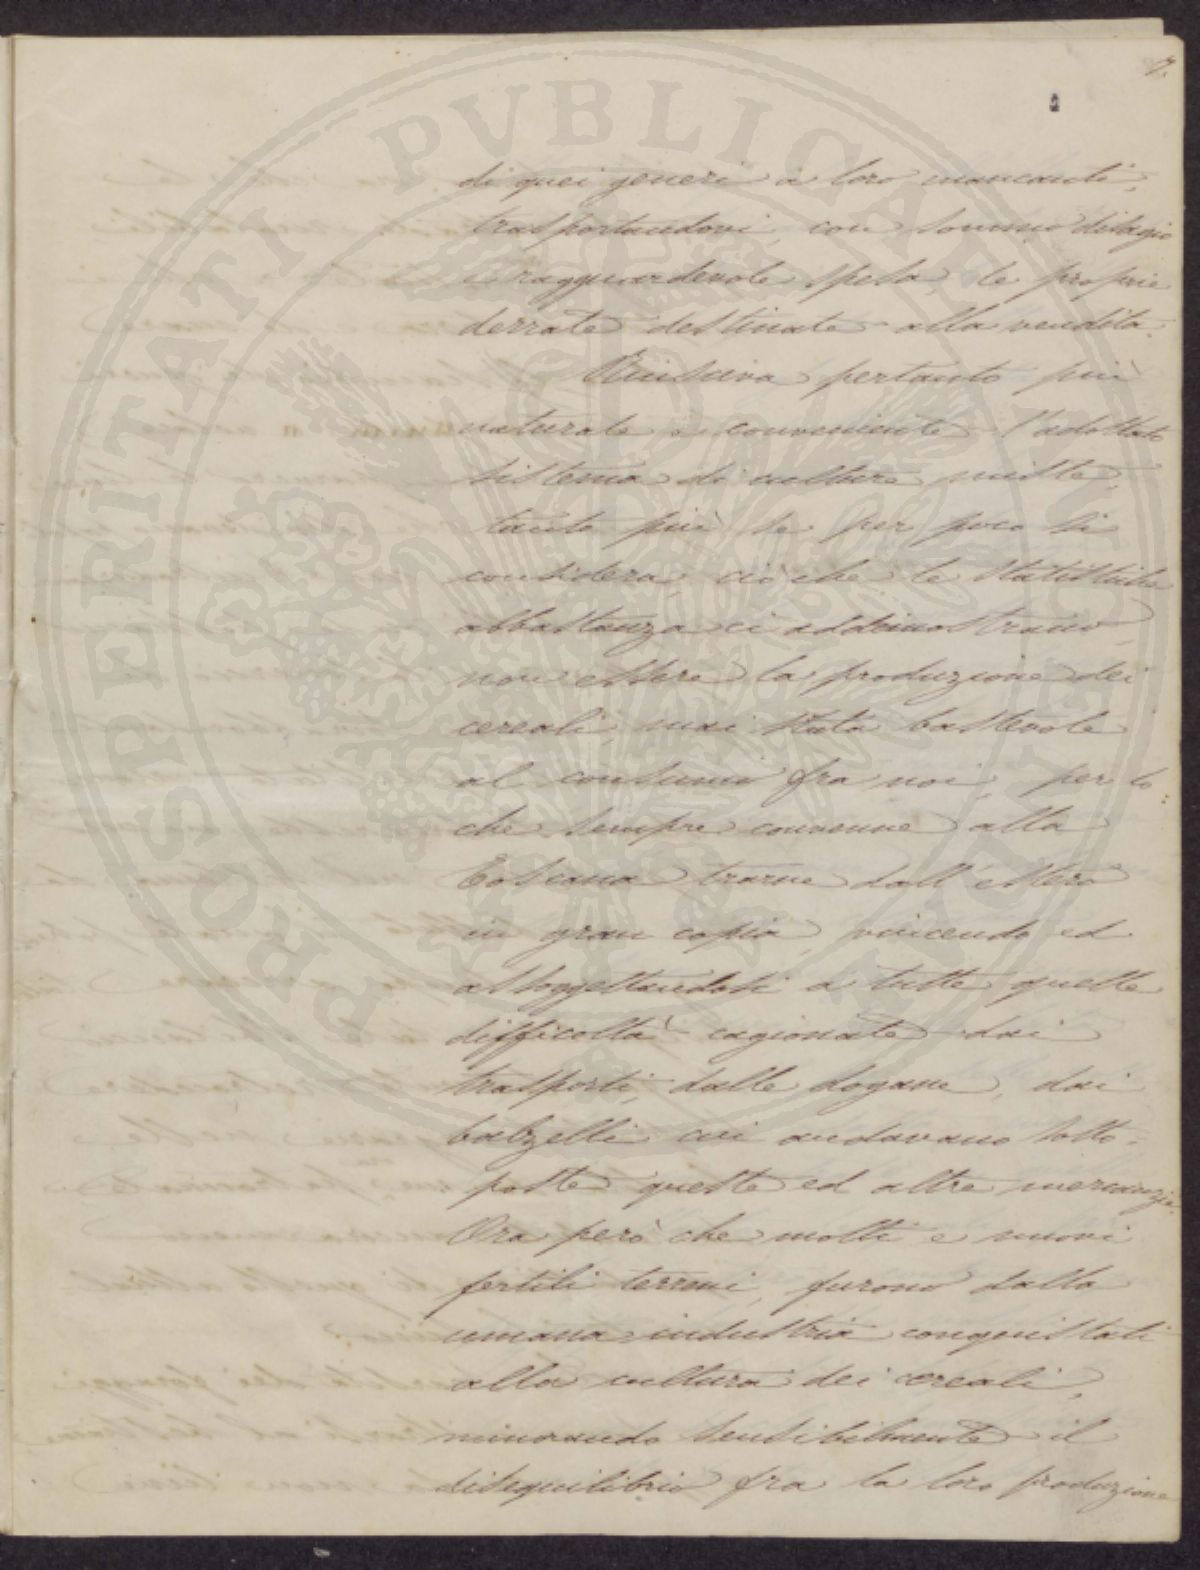 7.
PROSPERITATI PUBLICAE
di quei generi a loro mancanti,
trasportandovi, con sommo disagio
e ragguardevole spesa, le proprie
derrate destinate alla vendita.
Riusciva pertanto più
naturale e conveniente l'adottato
sistema di culture miste,
tanto più se per poco si
considera, ciò che le statistiche
abbastanza ci addimostrano,
non essere la produzione dei
cereali, mai stata bastevole
al consumo fra noi, per lo
che sempre convenne alla
Toscana trarne dall'estero
in gran copia, vincendo ed
assoggettandosi a tutte quelle
difficoltà cagionate dai
trasporti, dalle dogane, dai
balzelli cui andavano sotto-
poste queste ed altre mercanzie.
Ora però che molti e nuovi
fertili terreni, furono dalla
umana industria conquistati
alla cultura dei cereali,
minorando sensibilmente il
disequilibrio fra la loro produzione